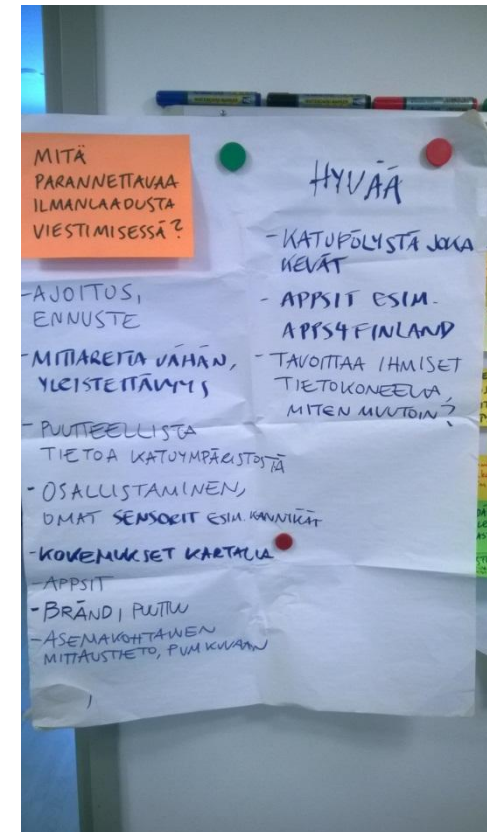 MITÄ
PARANNETTAVAA
ILMANLAADUSTA
VIESTIMISESSÄ?
-AJOITUS,
ENNUSTE
-MITTAREITA VÄHÄN,
YLEISTETTÄVYYS
- PUUTTEELLISTA
TIETOA KATUYMPÄRISTÖSTÄ
-OSALLISTAMINEN,
OMAT SENSORIT ESIM. KÄNNYKÄT
-KOKEMUKSET KARTALLA
-APPSIT
-BRÄNDI PUUTTUU
-ASEMAKOHTAINEN
MITTAUSTIETO,
HYVÄÄ
-KATUPÖLYSTÄ JOKA
KEVÄT
- APPSIT ESIM.
APPS4FINLAND
- TAVOITTAA IHMISET
TIETOKONEELLA,
MITEN MUUTOIN?